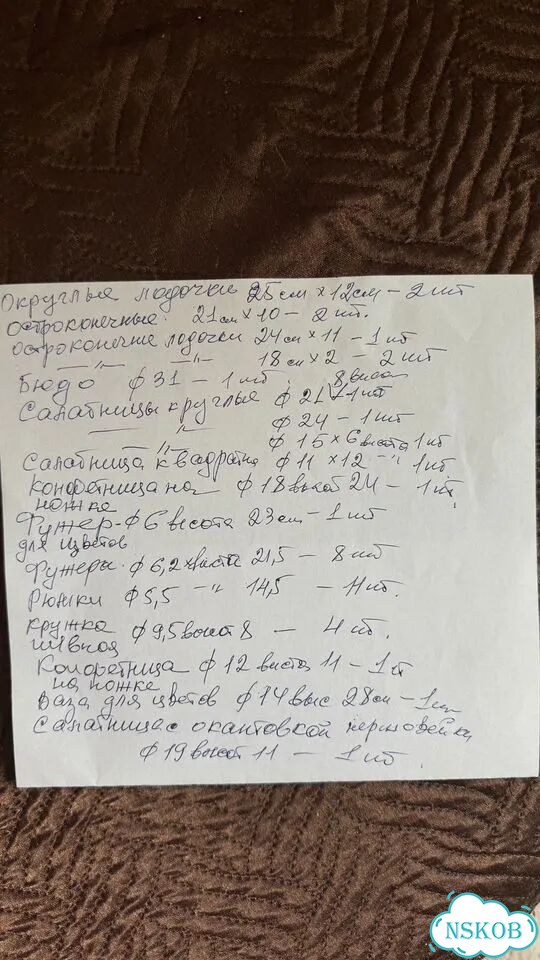 Округлые лодочки 25см × 12см – 2 шт
остроконечные 21см × 10 – 2 шт.
остроконечние лодочки 24см × 11 – 1 шт
—"— —"— 18см × 2 – 2 шт
Бюдо ф 31 – 1 шт. 8 высот
Салатницы круглые ф 21 – 1 шт
ф 24 – 1 шт
—"— ф 15 × 6 высота 1 шт
Салатница квадратна ф 11 × 12 –"– 1 шт.
Конфетница на ф 18 высот 24 – 1 шт,
ножке
Фужер – ф 6 высота 23см – 1 шт
для цветов
Фужеры ф 6,2 × высота 21,5 – 8 шт
Рюмки ф 5,5 –"– 14,5 – 11 шт.
кружка ф 9,5 высот 8 – 4 шт.
пивная
Конфетница ф 12 виста 11 – 1 шт
на ножке
Ваза для цветов ф 14 выс 28см – 1 шт
Салатница с окантовкой
ф 19 высот 11 – 1 шт.
NSKOB